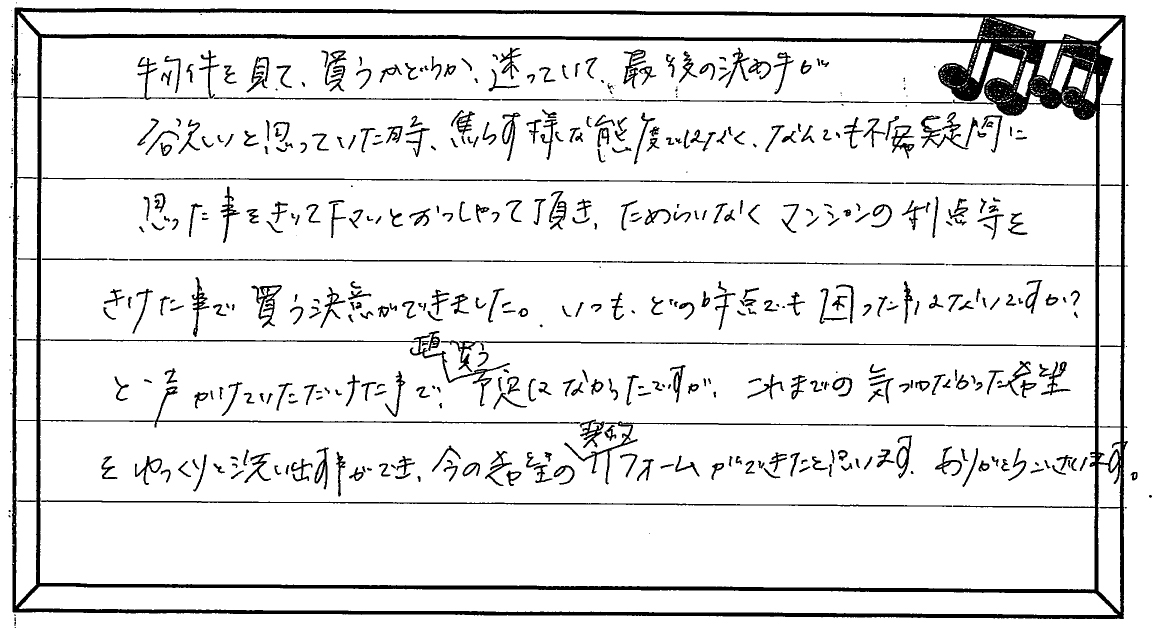 物件を見て、買うかどうか、迷っていて、最後の決め手が
欲しいと思っていた時、焦らす様な態度ではなく、なんでも不安疑問に
思った事をきいて下さいとおっしゃって頂き、ためらいなくマンションの利点等を
きけた事で買う決意ができました。いつも、どの時点でも困った事はないですか?
と一声かけていただいた事で、買う予定はなかったですが、これまでの気づかなかった希望
をゆっくりと洗い出す事ができ、今の希望の契約リフォームができたと思います。ありがとうございます。